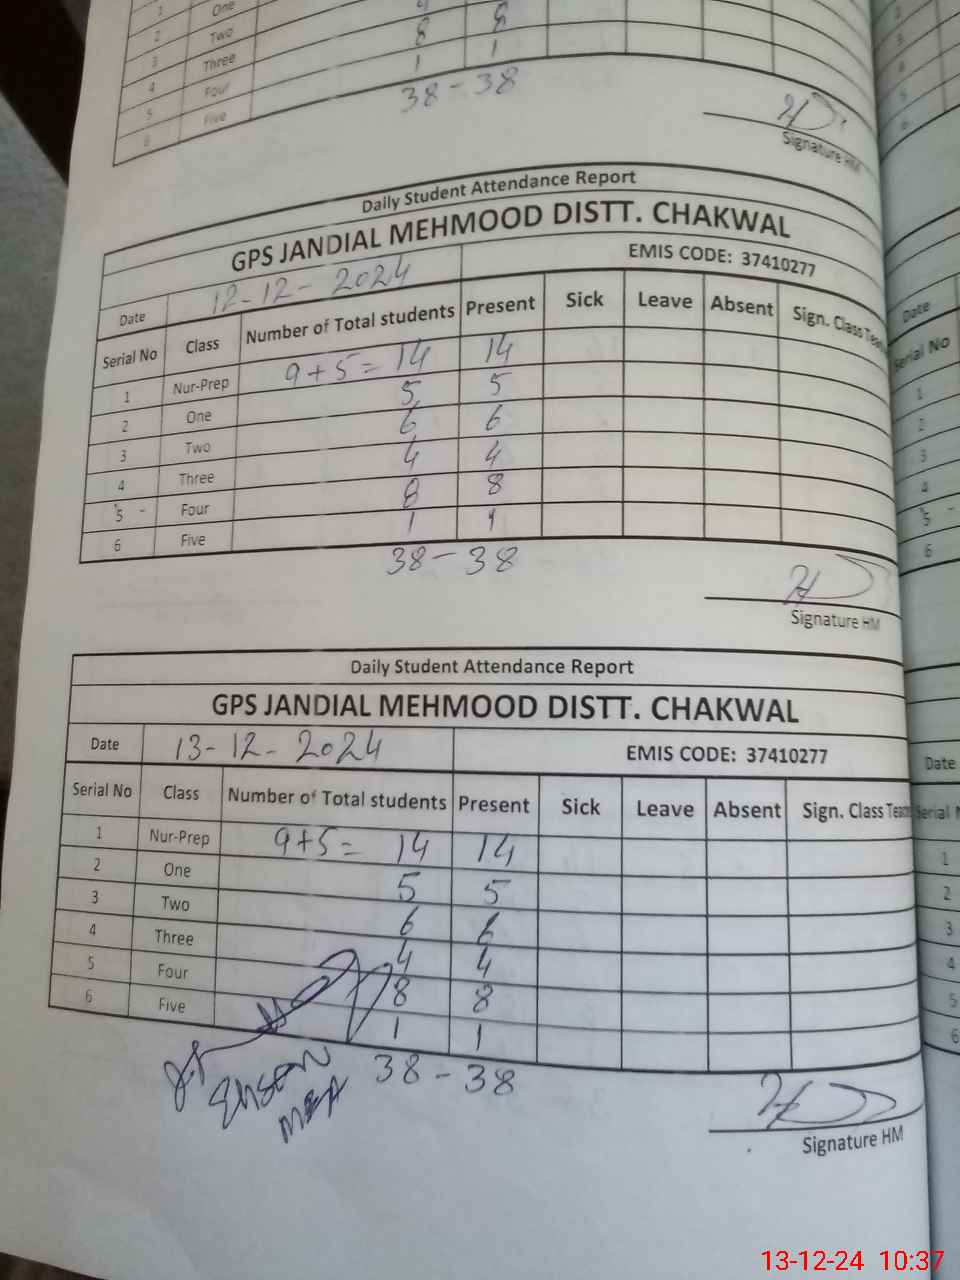 1 One
2 Two 8 8
3 Three 1 1
4 Four 38 - 38
5 Five
6
Signature HM
Daily Student Attendance Report
GPS JANDIAL MEHMOOD DISTT. CHAKWAL
EMIS CODE: 37410277
Date 12-12-2024
Serial No Class Number of Total students Present Sick Leave Absent Sign. Class Teach
1 Nur-Prep 9+5=14 14
2 One 5 5
3 Two 6 6
4 Three 4 4
5 Four 8 8
6 Five 1 1
38 - 38
Signature HM
Daily Student Attendance Report
GPS JANDIAL MEHMOOD DISTT. CHAKWAL
Date 13-12-2024 EMIS CODE: 37410277
Serial No Class Number of Total students Present Sick Leave Absent Sign. Class Teac
1 Nur-Prep 9+5= 14 14
2 One 5 5
3 Two 6 6
4 Three 4 4
5 Four 8 8
6 Five 1 1
38 - 38
Ehsan
MEA
Signature HM
Date
Serial No
1
2
3
4
5
6
Date
Serial N
1
2
3
4
5
6
13-12-24 10:37